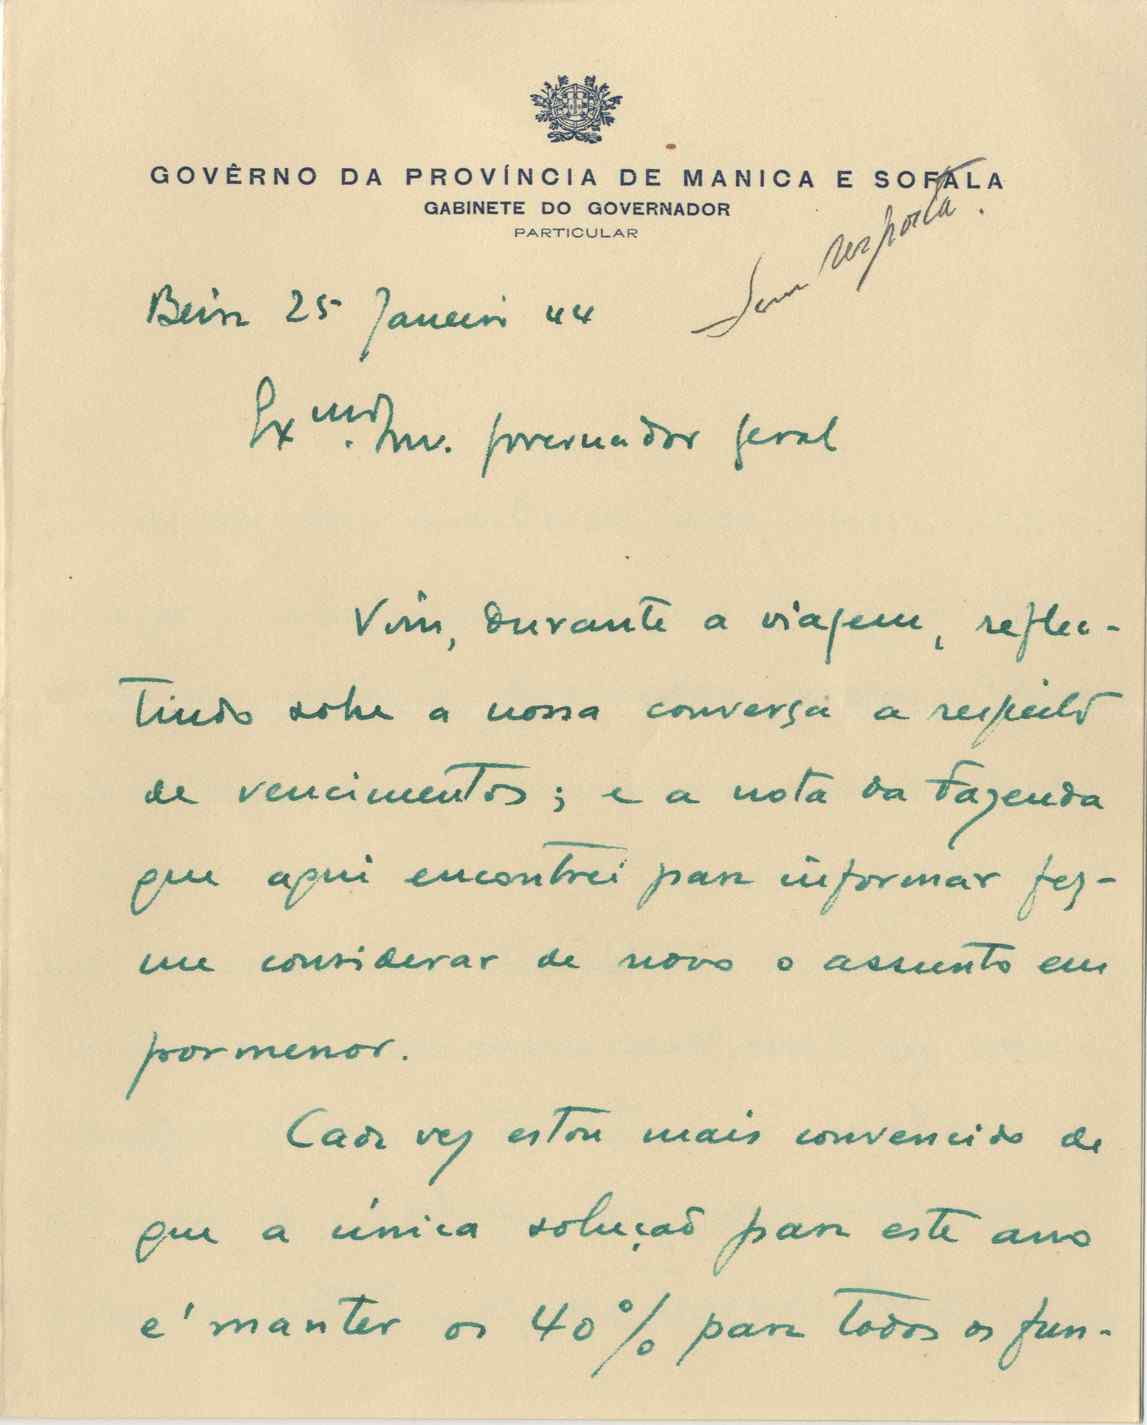 GOVÊRNO DA PROVÍNCIA DE MANICA E SOFALA
GABINETE DO GOVERNADOR
PARTICULAR
Sem resposta.
Beira 25 Janeiro 44
Exmo. Snr. Governador Geral
Vim, durante a viagem, reflec-
tindo sobre a nossa conversa a respeito
de vencimentos; e a nota da Fazenda
que aqui encontrei para informar fez-
me considerar de novo o assunto em
pormenor.
Cada vez estou mais convencido de
que a única solução para este ano
é manter os 40% para todos os fun-